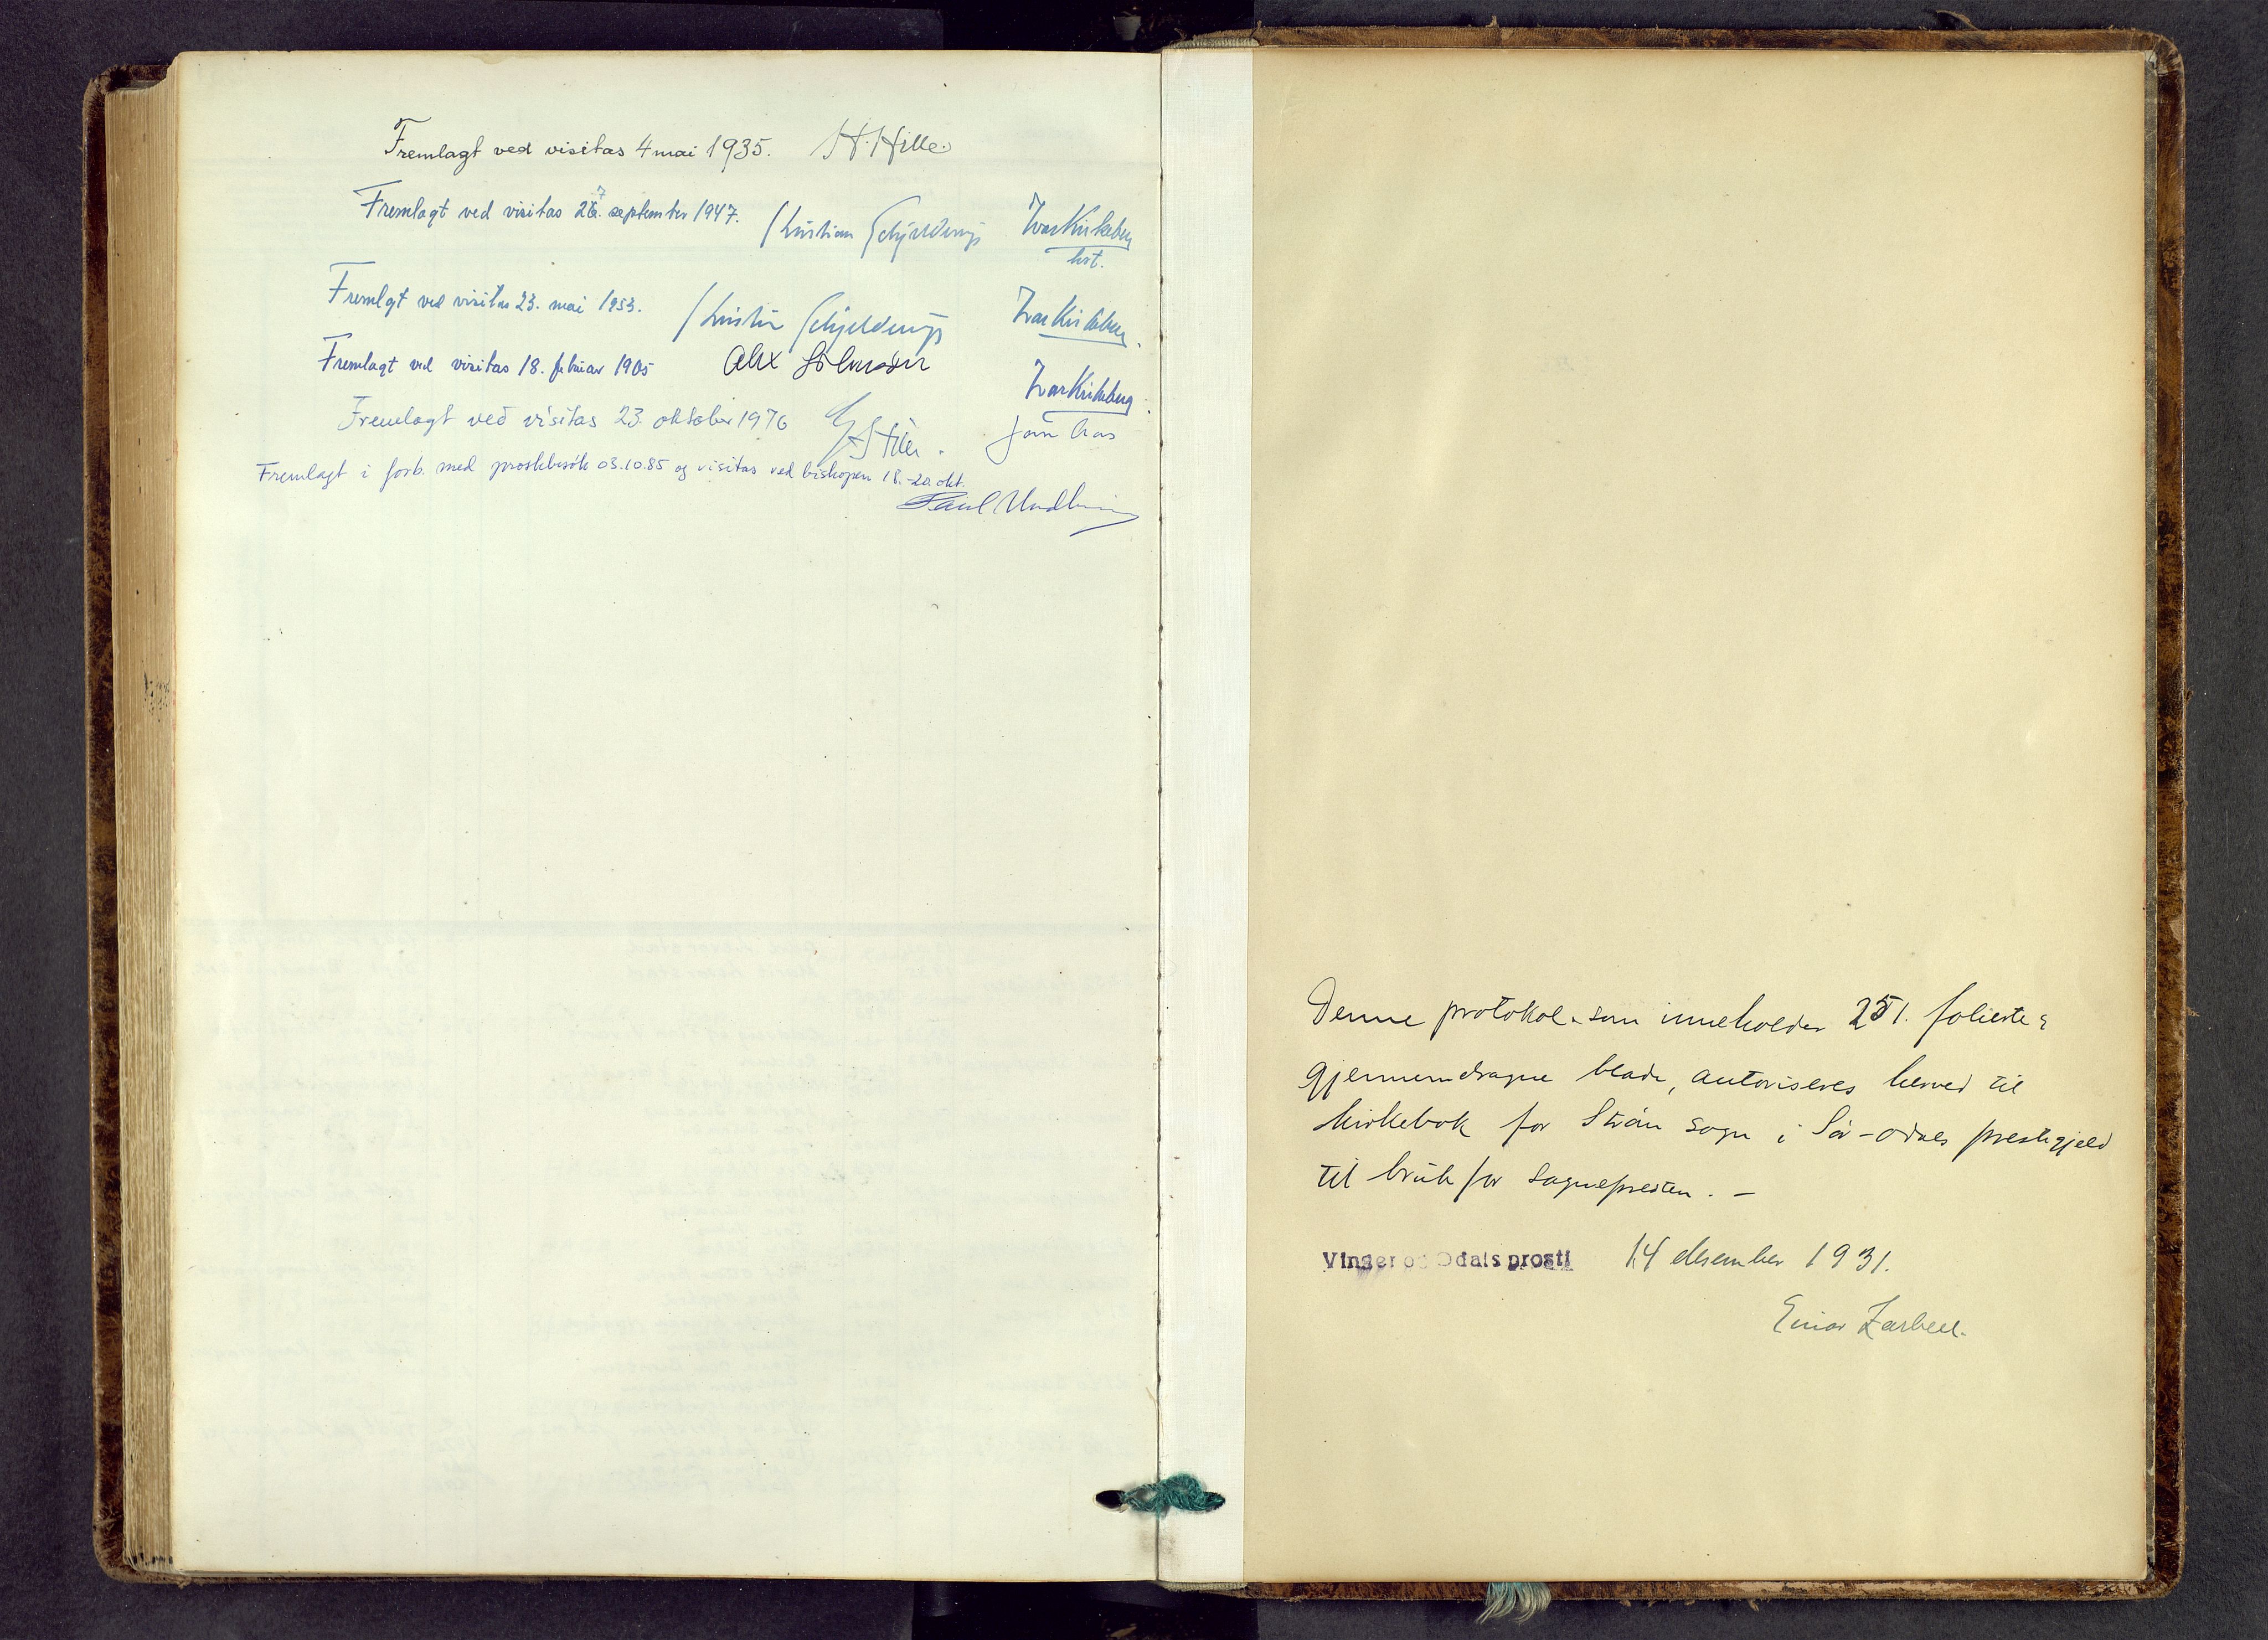 Fremlagt ved visitas 4 mai 1935. H. Hille.
Fremlagt ved visitas 27. september 1947. Kristian Schjelderup Ivar Kirkeberg
Fremlgt ved visitas 23. mai 1953. Schjelderup Ivar Kirkeberg.
Fremlagt ved visitas 18. februar Alex Ivar Kirkeberg.
Fremlagt ved visitas 23. oktober 1976
Fremlagt i forb. med prostebesök 03.10.85 og visitas ved biskopen 18.-20. okt.
Paul
Denne protokol som inneholder 251. folierte &
gjennemdragne blade, autoriseres herved til
kirkebok for Strøm sogn i Sør-Odals prestegjeld
til bruk for sognepresten. —
Vinger og Odals prosti 14 desember 1931.
Einar